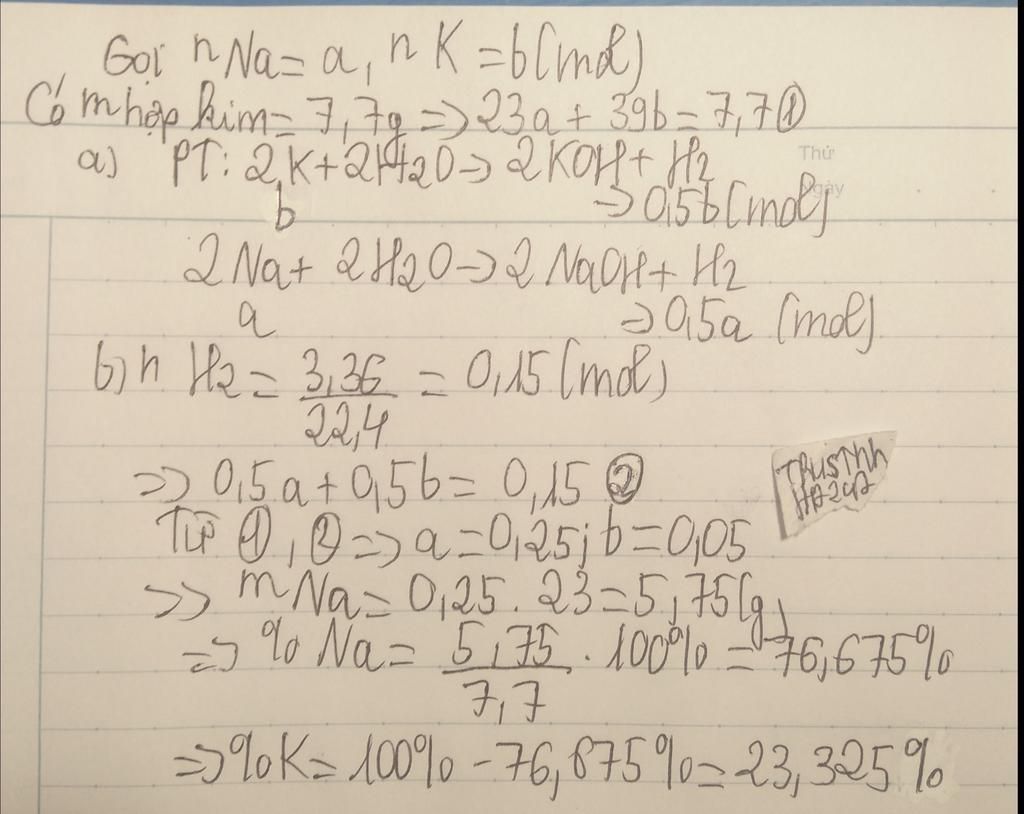 Gọi nNa = a, nK = b(mol)
Có m hợp kim = 7,7g => 23a + 39b = 7,7 ①
a) PT: 2K + 2H2O -> 2KOH + H2
Thứ
Ngày
b -> 0,5b (mol)
2Na + 2H2O -> 2NaOH + H2
a => 0,5a (mol)
b) n H2 = 3,36 / 22,4 = 0,15 (mol)
=> 0,5a + 0,5b = 0,15 ②
Từ ①, ② => a = 0,25; b = 0,05
=> mNa = 0,25 . 23 = 5,75(g)
=> % Na = 5,75 / 7,7 . 100% = 76,675%
=> %K = 100% - 76,675% = 23,325%